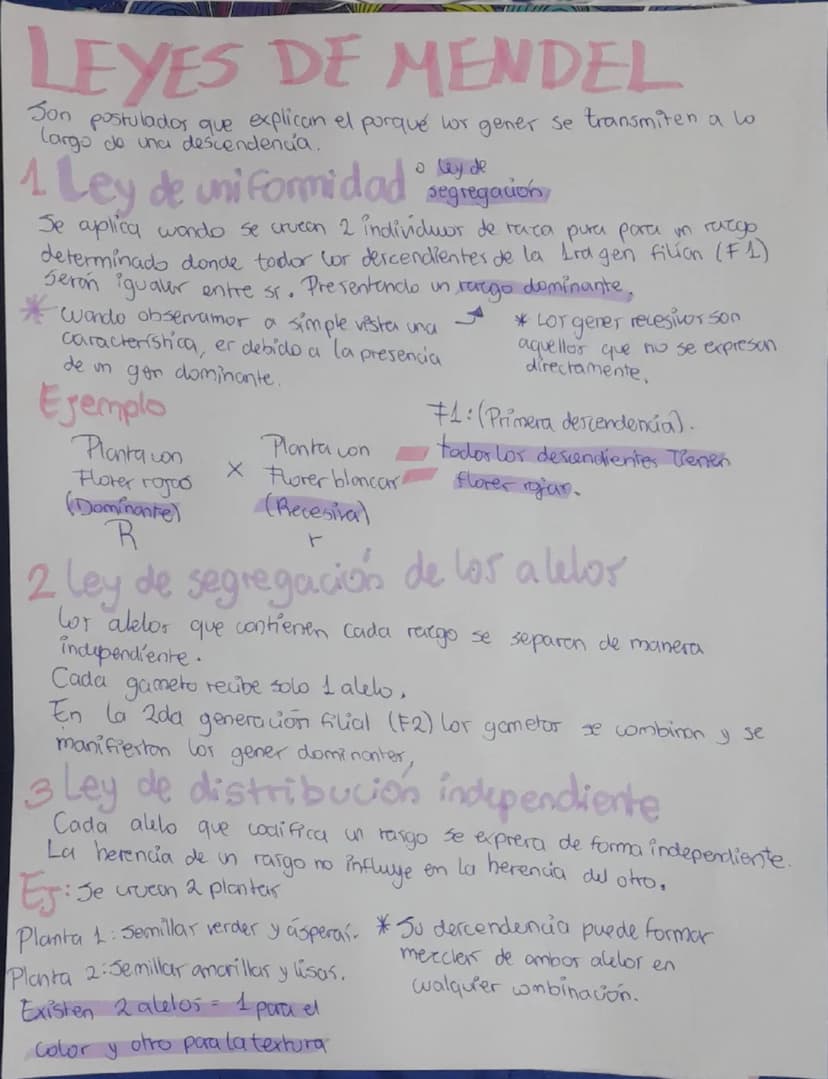 LEYES DE MENDEL
Son postulados que explican el porqué los genes se transmiten a lo
largo de una descendencia.
1 Ley de uniformidad o ley de
segregación
Se aplica cuando se cruzan 2 individuos de raza pura para un rasgo
determinado donde todos los descendientes de la 1ra gen filian (F1)
Serán iguales entre sí. Presentando un rasgo dominante.
* Cuando observamos a simple vista una
característica, es debido a la presencia
de un gen dominante.
* Los genes recesivos son
aquellos que no se expresan
directamente.
Ejemplo
Planta con
Flores rojas
(Dominante)
R
x
Planta con
Flores blancas
(Recesiva)
r
F1: (Primera descendencia).
todos los descendientes tienen
flores rojas.
2 Ley de segregación de los alelos
Los alelos que contienen cada rasgo se separan de manera
independiente.
Cada gameto recibe solo 1 alelo.
En la 2da generación filial (F2) los gametos se combinan y se
manifiestan los genes dominantes,
3 Ley de distribución independiente
Cada alelo que codifica un rasgo se expresa de forma independiente.
La herencia de un rasgo no influye en la herencia del otro.
Ej: Se cruzan 2 plantas
Planta 1: Semillas verdes y ásperas.
Planta 2: Semillas amarillas y lisas.
Existen 2 alelos = 1 para el
color y otro para la textura
* Su descendencia puede formar
mezclas de ambos alelos en
cualquier combinación.